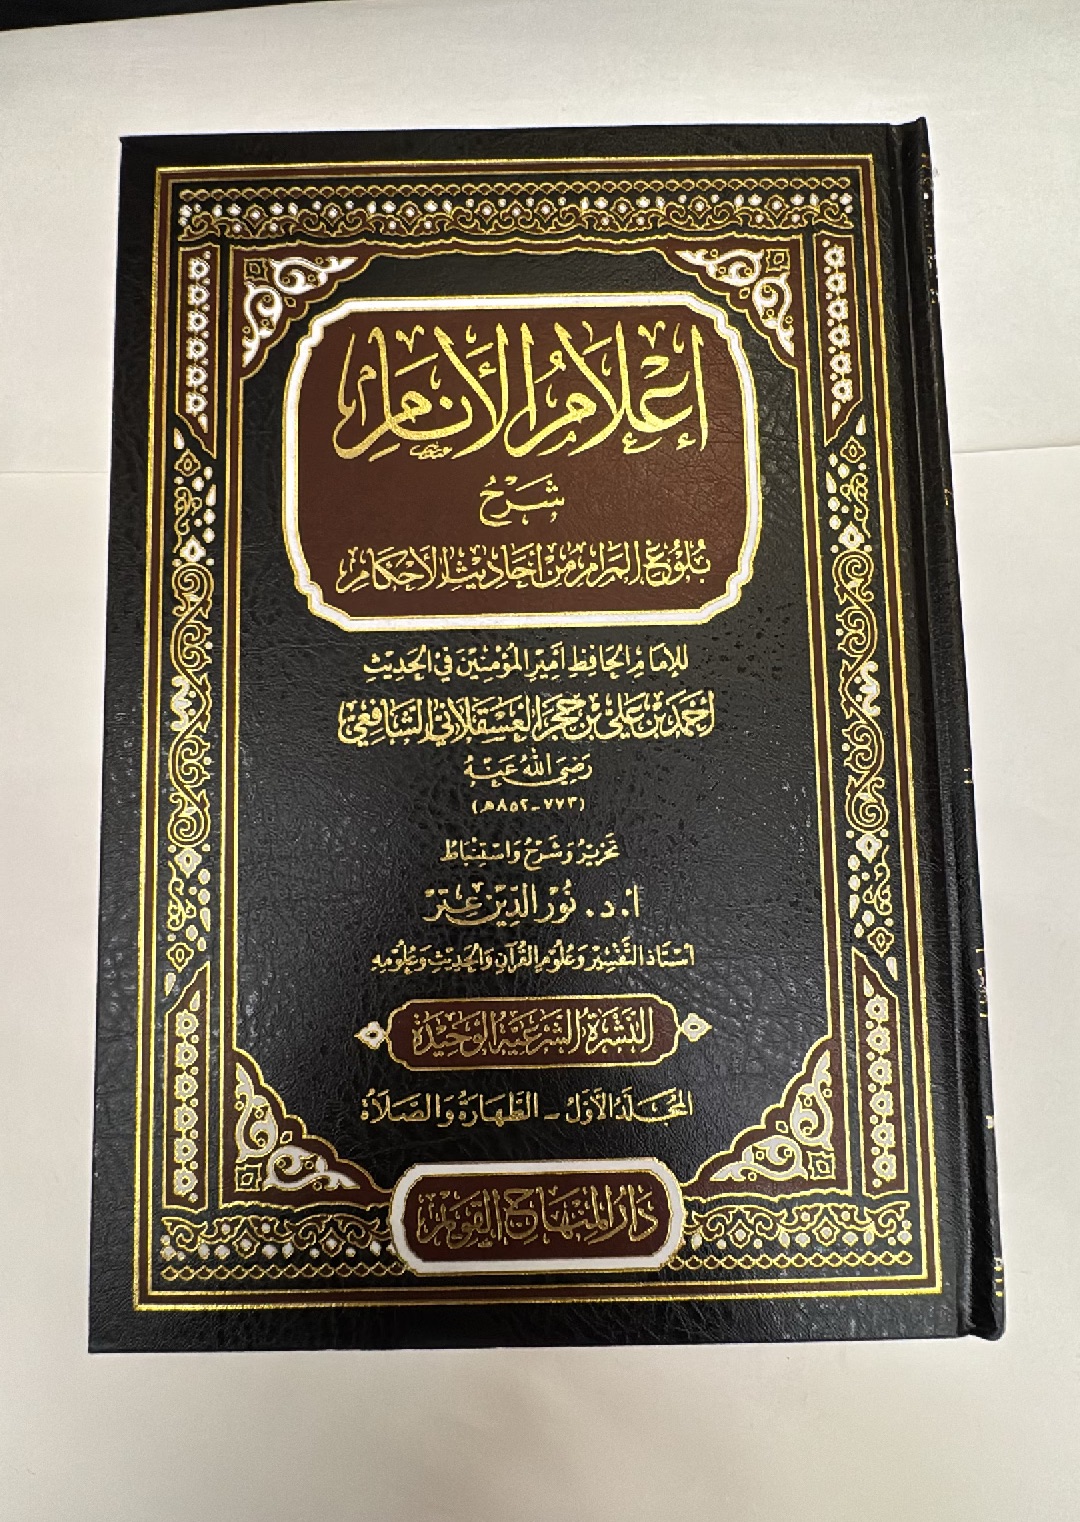 إِعْلَامُ الْأَنَامِ
شَرْحُ
بُلُوْغِ الْمَرَامِ مِنْ أَحَادِيْثِ الْأَحْكَامِ
لِلإِمَامِ الْحَافِظِ أَمِيْرِ الْمُؤْمِنِيْنَ فِي الْحَدِيْثِ
أَحْمَدَ بْنِ عَلِيِّ بْنِ حَجَرٍ الْعَسْقَلَانِيِّ الشَّافِعِيِّ
رَضِيَ اللهُ عَنْهُ
(٧٧٣-٨٥٢هـ)
تَحْرِيْرُ وَشَرْحُ وَاسْتِنْبَاطُ
أ.د. نُوْرُ الدِّيْن عِتْرْ
أُسْتَاذ التَّفْسِيْرِ وَعُلُوْمِ الْقُرْآنِ وَالْحَدِيْثِ وَعُلُوْمِهِ
النَّشْرَةُ الشَّرْعِيَّةُ الْوَحِيْدَةُ
الْمُجَلَّدُ الأَوَّلُ - الطَّهَارَةُ وَالصَّلَاةُ
دَارُ الْمِنْهَاجِ الْقَوِيْمِ